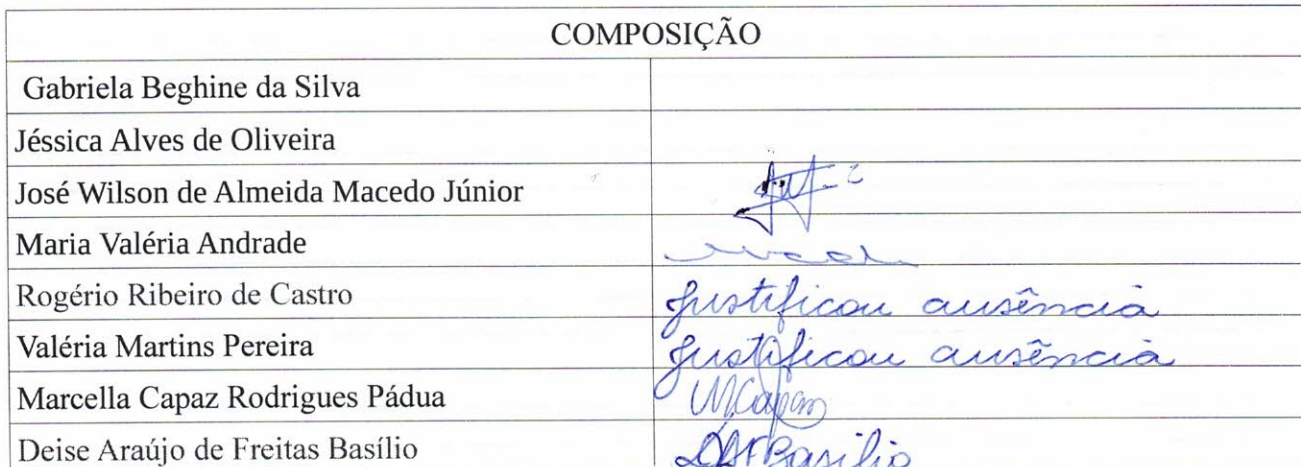 COMPOSIÇÃO
Gabriela Beghine da Silva
Jéssica Alves de Oliveira
José Wilson de Almeida Macedo Júnior
Maria Valéria Andrade
Rogério Ribeiro de Castro Justificou ausência
Valéria Martins Pereira Justificou ausência
Marcella Capaz Rodrigues Pádua MCapaz
Deise Araújo de Freitas Basílio DAFBasílio